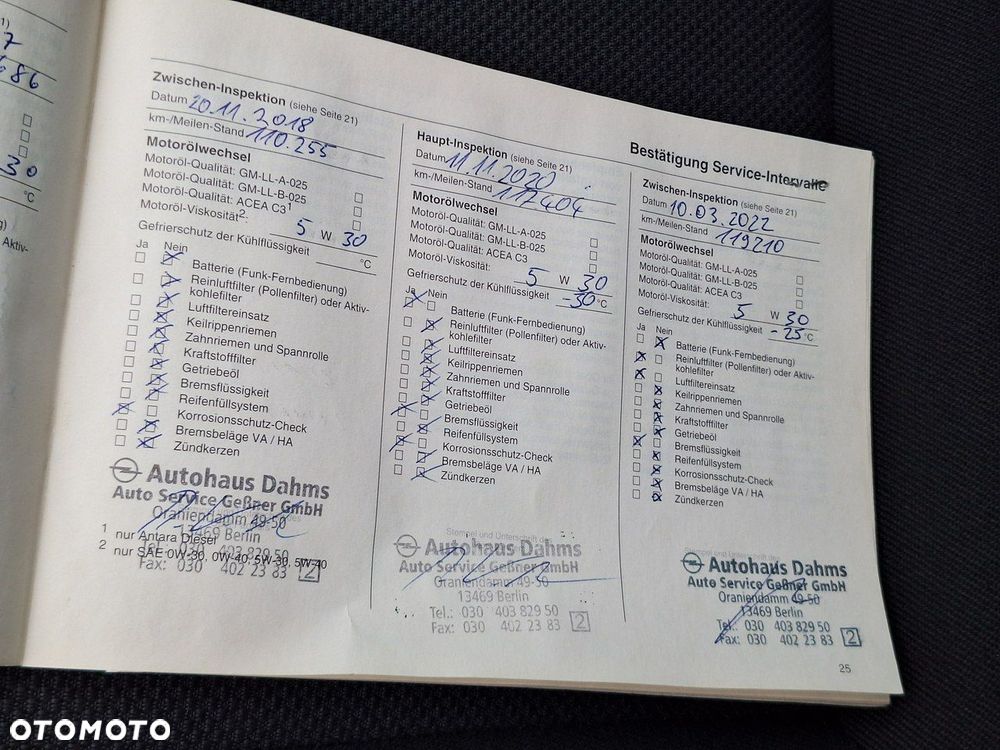 7
686
30
°C
Aktiv-
Zwischen-Inspektion (siehe Seite 21)
Datum 20.11.2018
km-/Meilen-Stand 110.255
Motorölwechsel
Motoröl-Qualität: GM-LL-A-025
Motoröl-Qualität: GM-LL-B-025
Motoröl-Qualität: ACEA C3¹
Motoröl-Viskosität²: 5 W 30
Gefrierschutz der Kühlflüssigkeit °C
Ja Nein
Batterie (Funk-Fernbedienung)
Reinluftfilter (Pollenfilter) oder Aktiv-
kohlefilter
Luftfiltereinsatz
Keilrippenriemen
Zahnriemen und Spannrolle
Kraftstofffilter
Getriebeöl
Bremsflüssigkeit
Reifenfüllsystem
Korrosionsschutz-Check
Bremsbeläge VA / HA
Zündkerzen
Autohaus Dahms
Auto Service Geßner GmbH
Oraniendamm 49-50
13469 Berlin
Tel.: 030 403 829 50
Fax: 030 402 23 83 2
1 nur Antara Diesel
2 nur SAE 0W-30, 0W-40, 5W-30, 5W-40
Haupt-Inspektion (siehe Seite 21)
Datum 11.11.2020
km-/Meilen-Stand 117404
Motorölwechsel
Motoröl-Qualität: GM-LL-A-025
Motoröl-Qualität: GM-LL-B-025
Motoröl-Qualität: ACEA C3
Motoröl-Viskosität: 5 W 30
Gefrierschutz der Kühlflüssigkeit -30 °C
Ja Nein
Batterie (Funk-Fernbedienung)
Reinluftfilter (Pollenfilter) oder Aktiv-
kohlefilter
Luftfiltereinsatz
Keilrippenriemen
Zahnriemen und Spannrolle
Kraftstofffilter
Getriebeöl
Bremsflüssigkeit
Reifenfüllsystem
Korrosionsschutz-Check
Bremsbeläge VA / HA
Zündkerzen
Stempel und Unterschrift des
Autohaus Dahms
Auto Service Geßner GmbH
Oraniendamm 49-50
13469 Berlin
Tel.: 030 403 829 50
Fax: 030 402 23 83 2
Bestätigung Service-Intervalle
Zwischen-Inspektion (siehe Seite 21)
Datum 10.03.2022
km-/Meilen-Stand 119210
Motorölwechsel
Motoröl-Qualität: GM-LL-A-025
Motoröl-Qualität: GM-LL-B-025
Motoröl-Qualität: ACEA C3
Motoröl-Viskosität: 5 W 30
Gefrierschutz der Kühlflüssigkeit -25 °C
Ja Nein
Batterie (Funk-Fernbedienung)
Reinluftfilter (Pollenfilter) oder Aktiv-
kohlefilter
Luftfiltereinsatz
Keilrippenriemen
Zahnriemen und Spannrolle
Kraftstofffilter
Getriebeöl
Bremsflüssigkeit
Reifenfüllsystem
Korrosionsschutz-Check
Bremsbeläge VA / HA
Zündkerzen
Stempel und Unterschrift des
Autohaus Dahms
Auto Service Geßner GmbH
Oraniendamm 49-50
13469 Berlin
Tel.: 030 403 829 50
Fax: 030 402 23 83 2
25
OTOMOTO